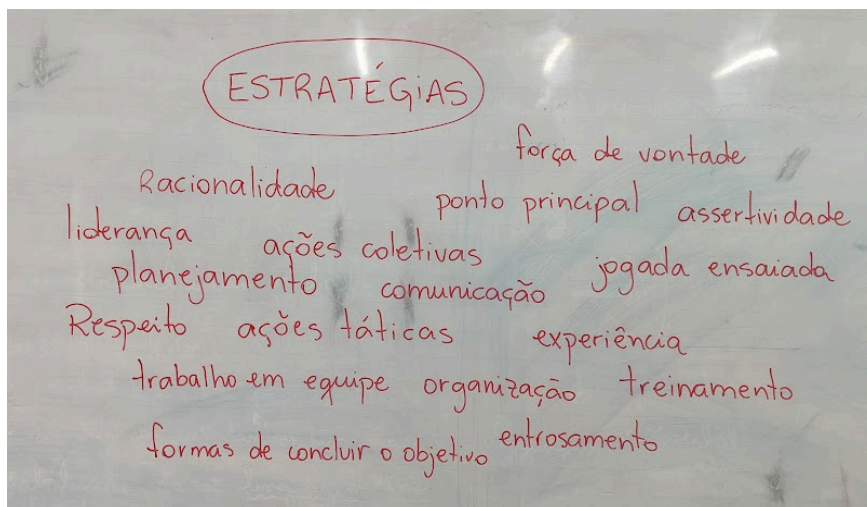 ESTRATÉGIAS
força de vontade
Racionalidade
ponto principal
assertividade
liderança
ações coletivas
planejamento
comunicação
jogada ensaiada
Respeito
ações táticas
experiência
trabalho em equipe
organização
treinamento
formas de concluir o objetivo
entrosamento